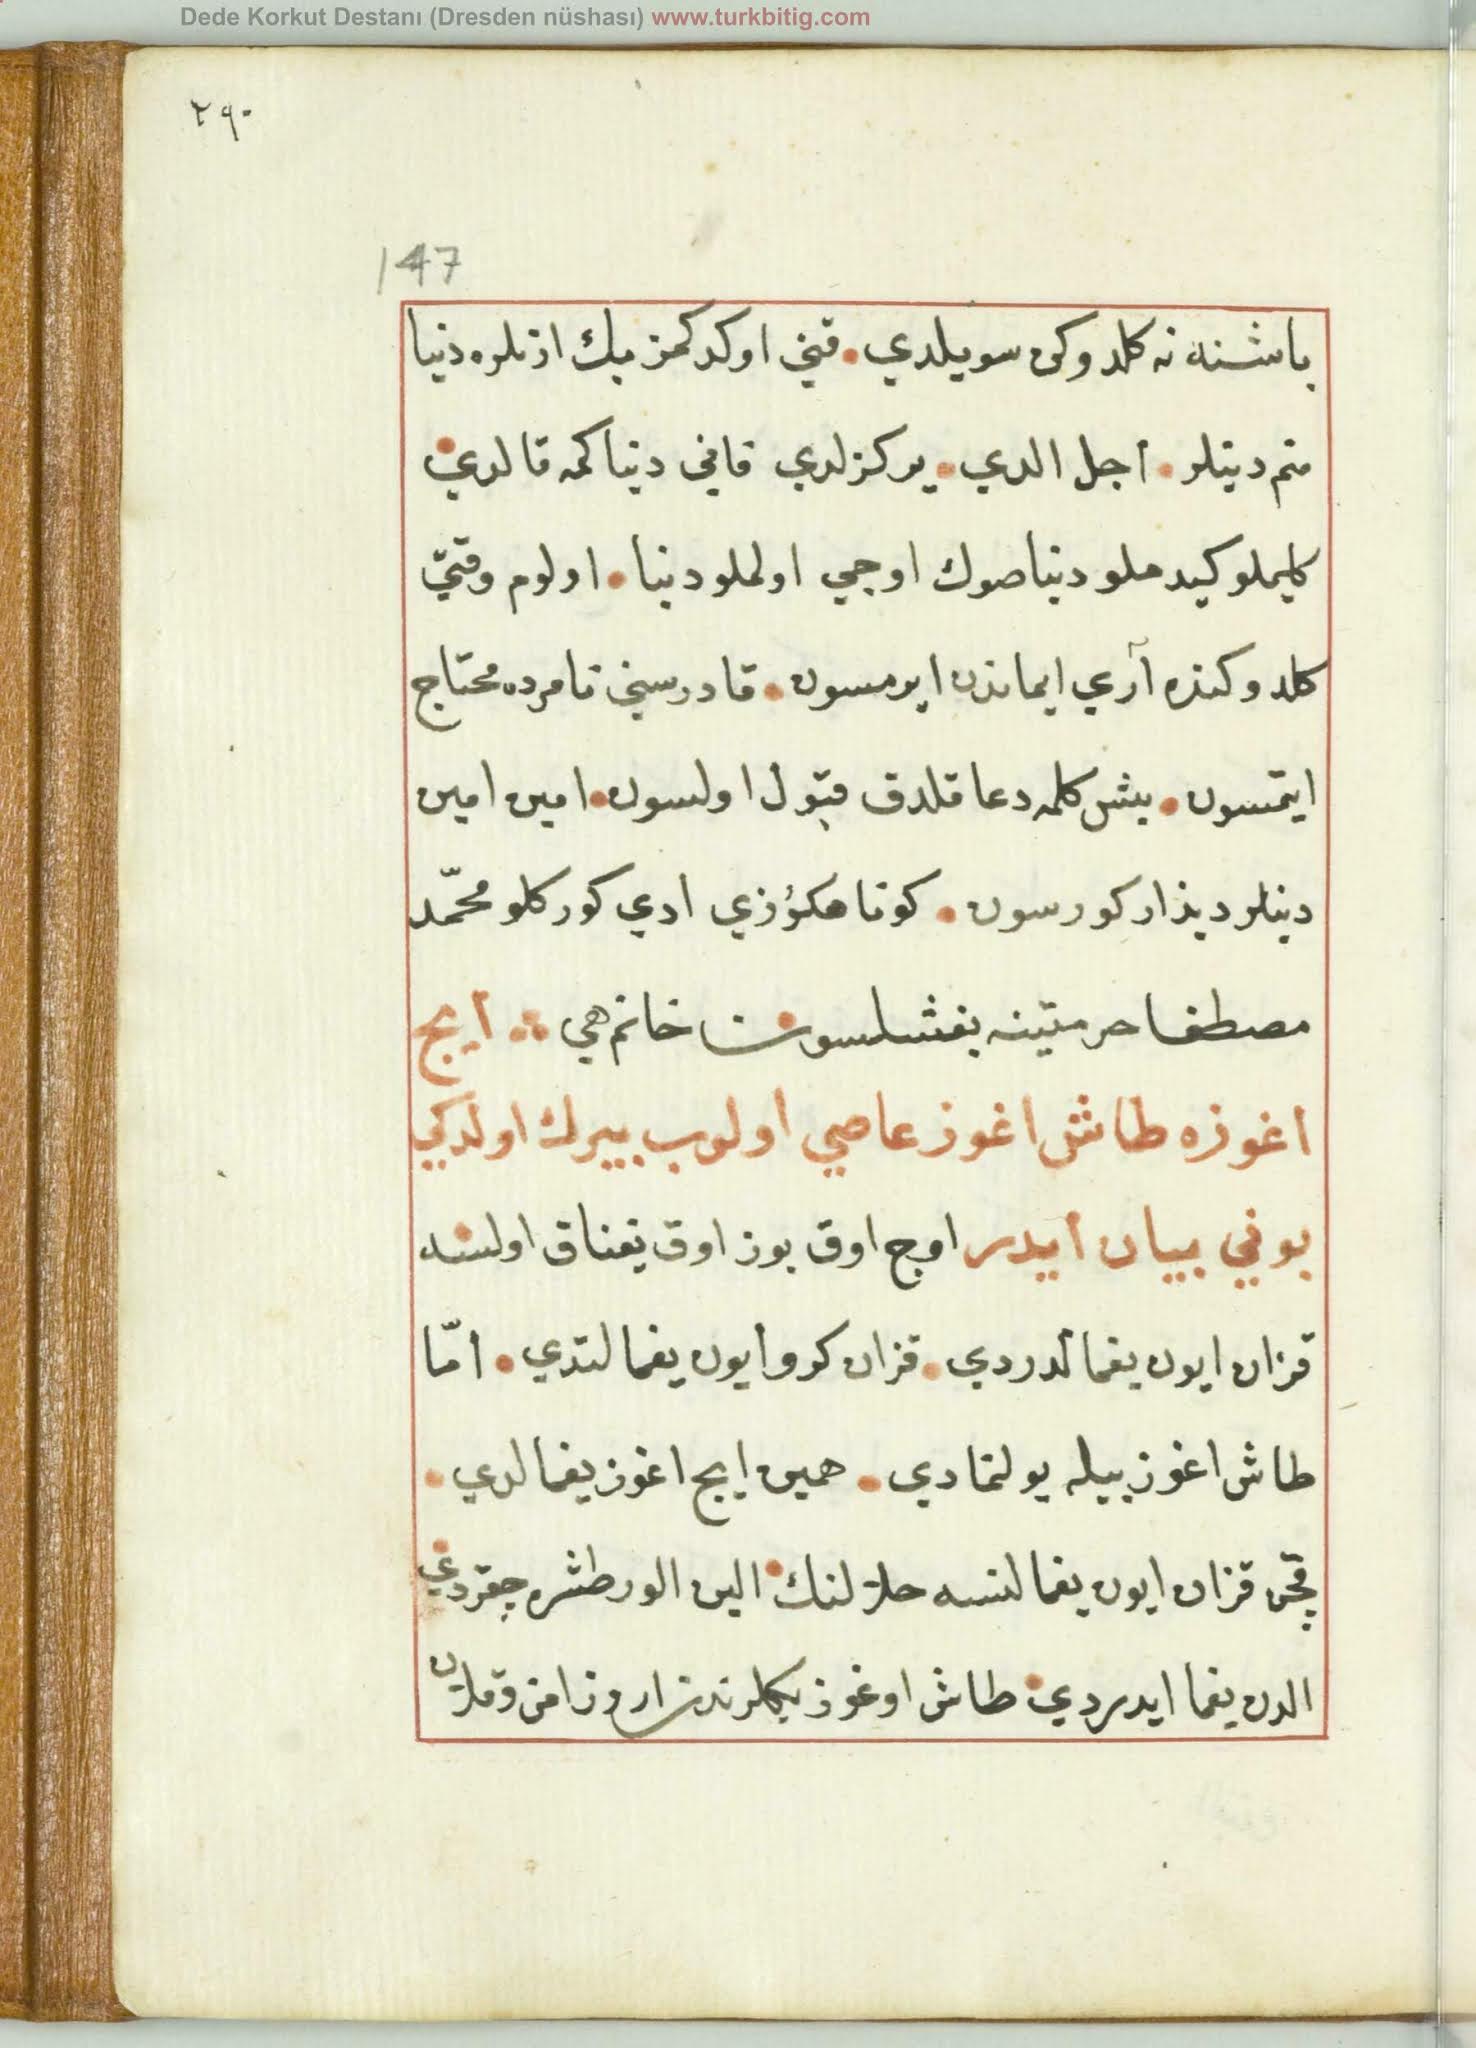 Dede Korkut Destanı (Dresden nüshası) www.turkbitig.com
٢٩٠
147
باشنه نه كلدوكی سویلدي • قنی اوكدكمز بك ازنلره دنیا
منم دینلر • اجل الدي • یر كزلدي فانی دنیا كمه قالدي •
كلیملو كیدملو دنیا صوك اوجي اولملو دنیا • اولوم وقتی
كلدوكنزه آري ایماندن ایرمسون • قادر سنی نامرده محتاج
ایتمسون • بیش كلمه دعا قلدق قبول اولسون • امین امین
دینلر دیذار كورسون • كوناهكؤزي ادي كوركلو محمّد
مصطفا حرمتینه بغشلسون خانم هي ایچ
اغوزه طاش اغوز عاصي اولوب بیرك اولدكي
بوني بیان ایدر اوج اوق بوز اوق یغناق اولسه
قزان ایون یغما لدردي • قزان كرو ایون یغمالتدي • امّا
طاش اغوز بیله بولنمادي • همین ایچ اغوز یغمالدي •
قچن قزان ایون یغمالتسه حلالنك الین الور طشره چقردي
الدن یغما ایدردي • طاش اوغوز بكلرندن اروز امن وقلان